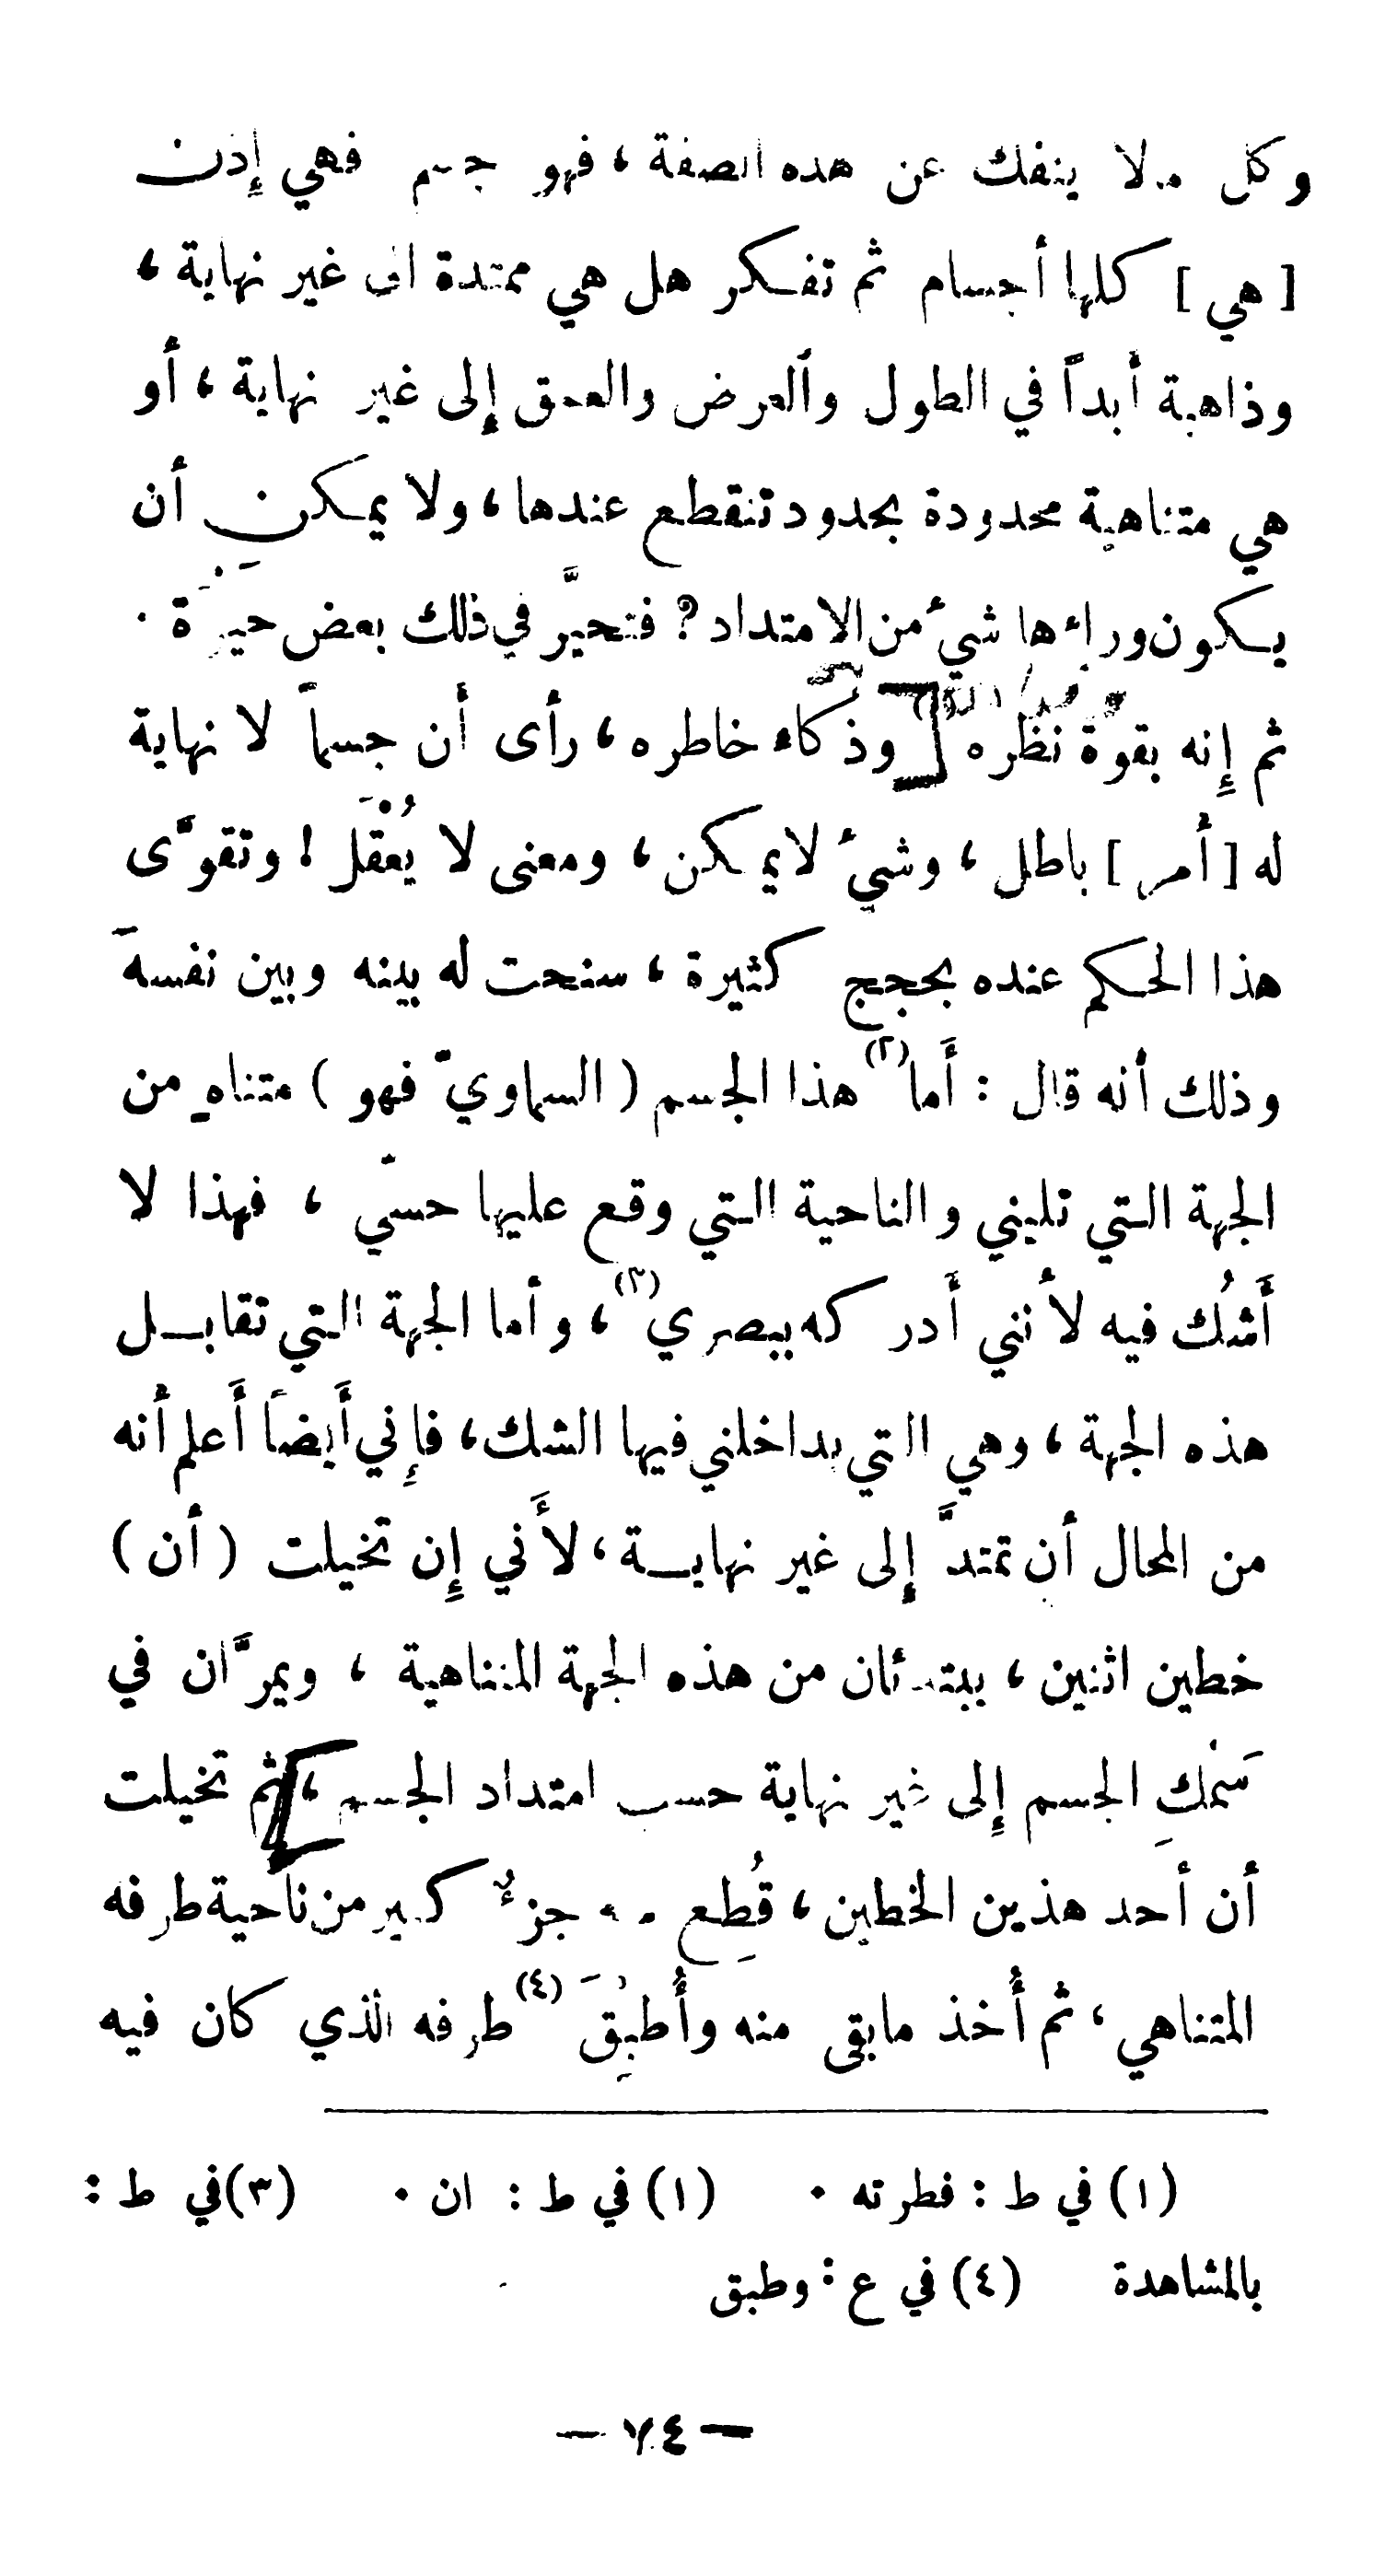 وكل ما لا ينفك عن هذه الصفة ، فهو جسم فهي إِذن
[ هي ] كلها أجسام ثم تفكر هل هي ممتدة الى غير نهاية ،
وذاهبة أبداً في الطول والعرض والعمق إلى غير نهاية ، أو
هي متناهية محدودة بحدود تنقطع عندها ، ولا يمكن أن
يكون وراءها شيءٌ من الامتداد ? فتحيَّر في ذلك بعض حيرَة .
ثم إِنه بقوَّة نظره (١) وذكاء خاطره ، رأى أن جسماً لا نهاية
له [ أمر ] باطل ، وشيءٌ لا يمكن ، ومعنى لا يُعْقَل ! وتقوَّى
هذا الحكم عنده بحجج كثيرة ، سنحت له بينه وبين نفسه
وذلك أنه قال : أَما (٢) هذا الجسم ( السماويّ فهو ) متناهٍ من
الجهة التي تليني والناحية التي وقع عليها حسّي ، فهذا لا
أَشُك فيه لأنني أَدركه ببصري (٣) ، وأما الجهة التي تقابل
هذه الجهة ، وهي التي يداخلني فيها الشك ، فإِني أَيضاً أَعلم أنه
من المحال أن تمتدَّ إلى غير نهاية ، لأَني إِن تخيلت ( أن )
خطين اثنين ، يبتدئان من هذه الجهة المتناهية ، ويمرَّان في
سَمْكِ الجسم إِلى غير نهاية حسب امتداد الجسم ، ثم تخيلت
أن أحد هذين الخطين ، قُطِع منه جزءٌ كبير من ناحية طرفه
المتناهي ، ثم أُخذ ما بقي منه وأُطبِقَ (٤) طرفه الذي كان فيه
(١) في ط : فطرته . (١) في ط : ان . (٣) في ط :
بالمشاهدة (٤) في ع : وطبق
— ٧٤ —